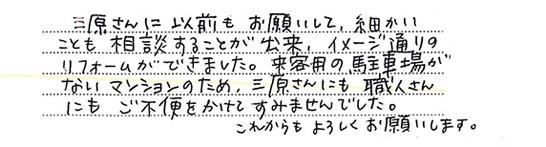 三原さんに以前もお願いして、細かい
ことも相談することが出来、イメージ通りの
リフォームができました。来客用の駐車場が
ないマンションのため、三原さんにも職人さん
にもご不便をかけてすみませんでした。
これからもよろしくお願いします。